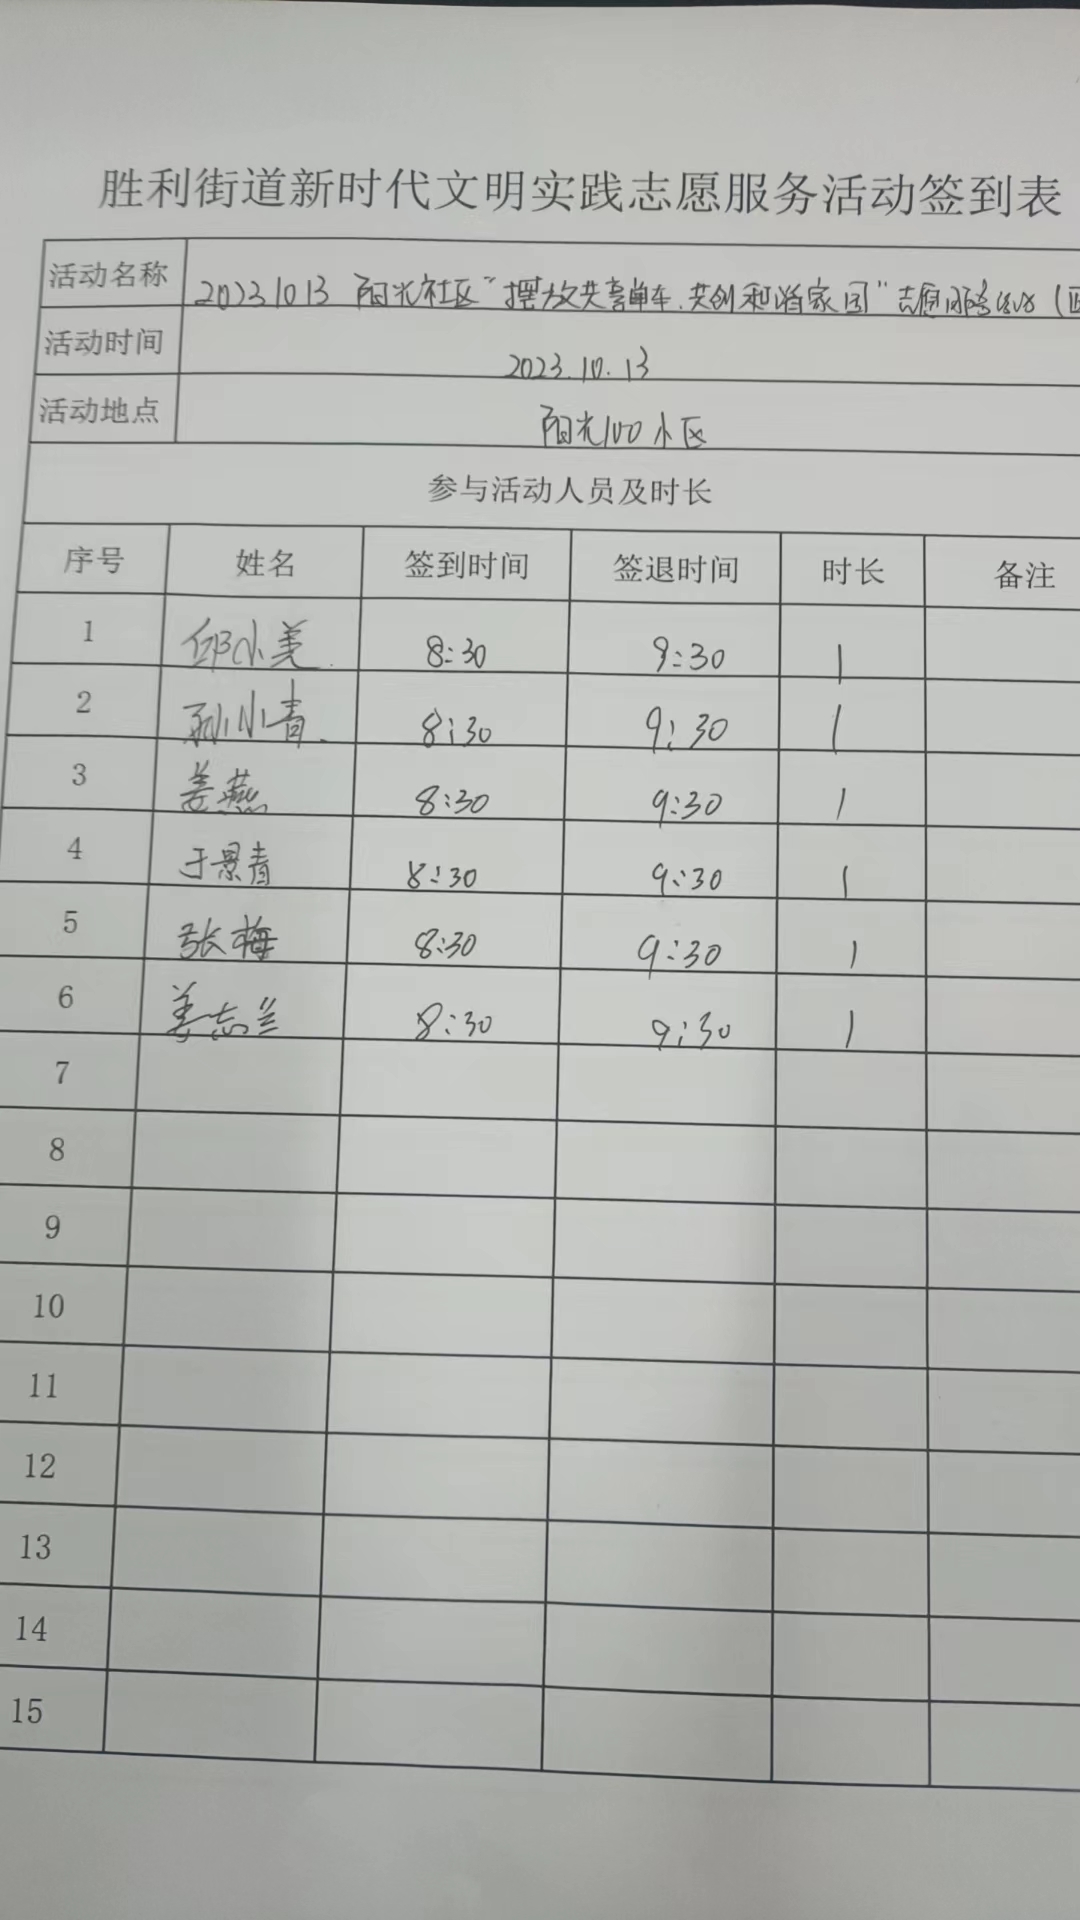 胜利街道新时代文明实践志愿服务活动签到表
活动名称 20231013 阳光社区“摆放共享单车.共创和谐家园”志愿服务活动(
活动时间 2023.10.13
活动地点 阳光100小区
参与活动人员及时长
序号 姓名 签到时间 签退时间 时长 备注
1 邱小美 8:30 9:30 1
2 孙小青 8:30 9:30 1
3 姜燕 8:30 9:30 1
4 于景青 8:30 9:30 1
5 张梅 8:30 9:30 1
6 姜志兰 8:30 9:30 1
7
8
9
10
11
12
13
14
15